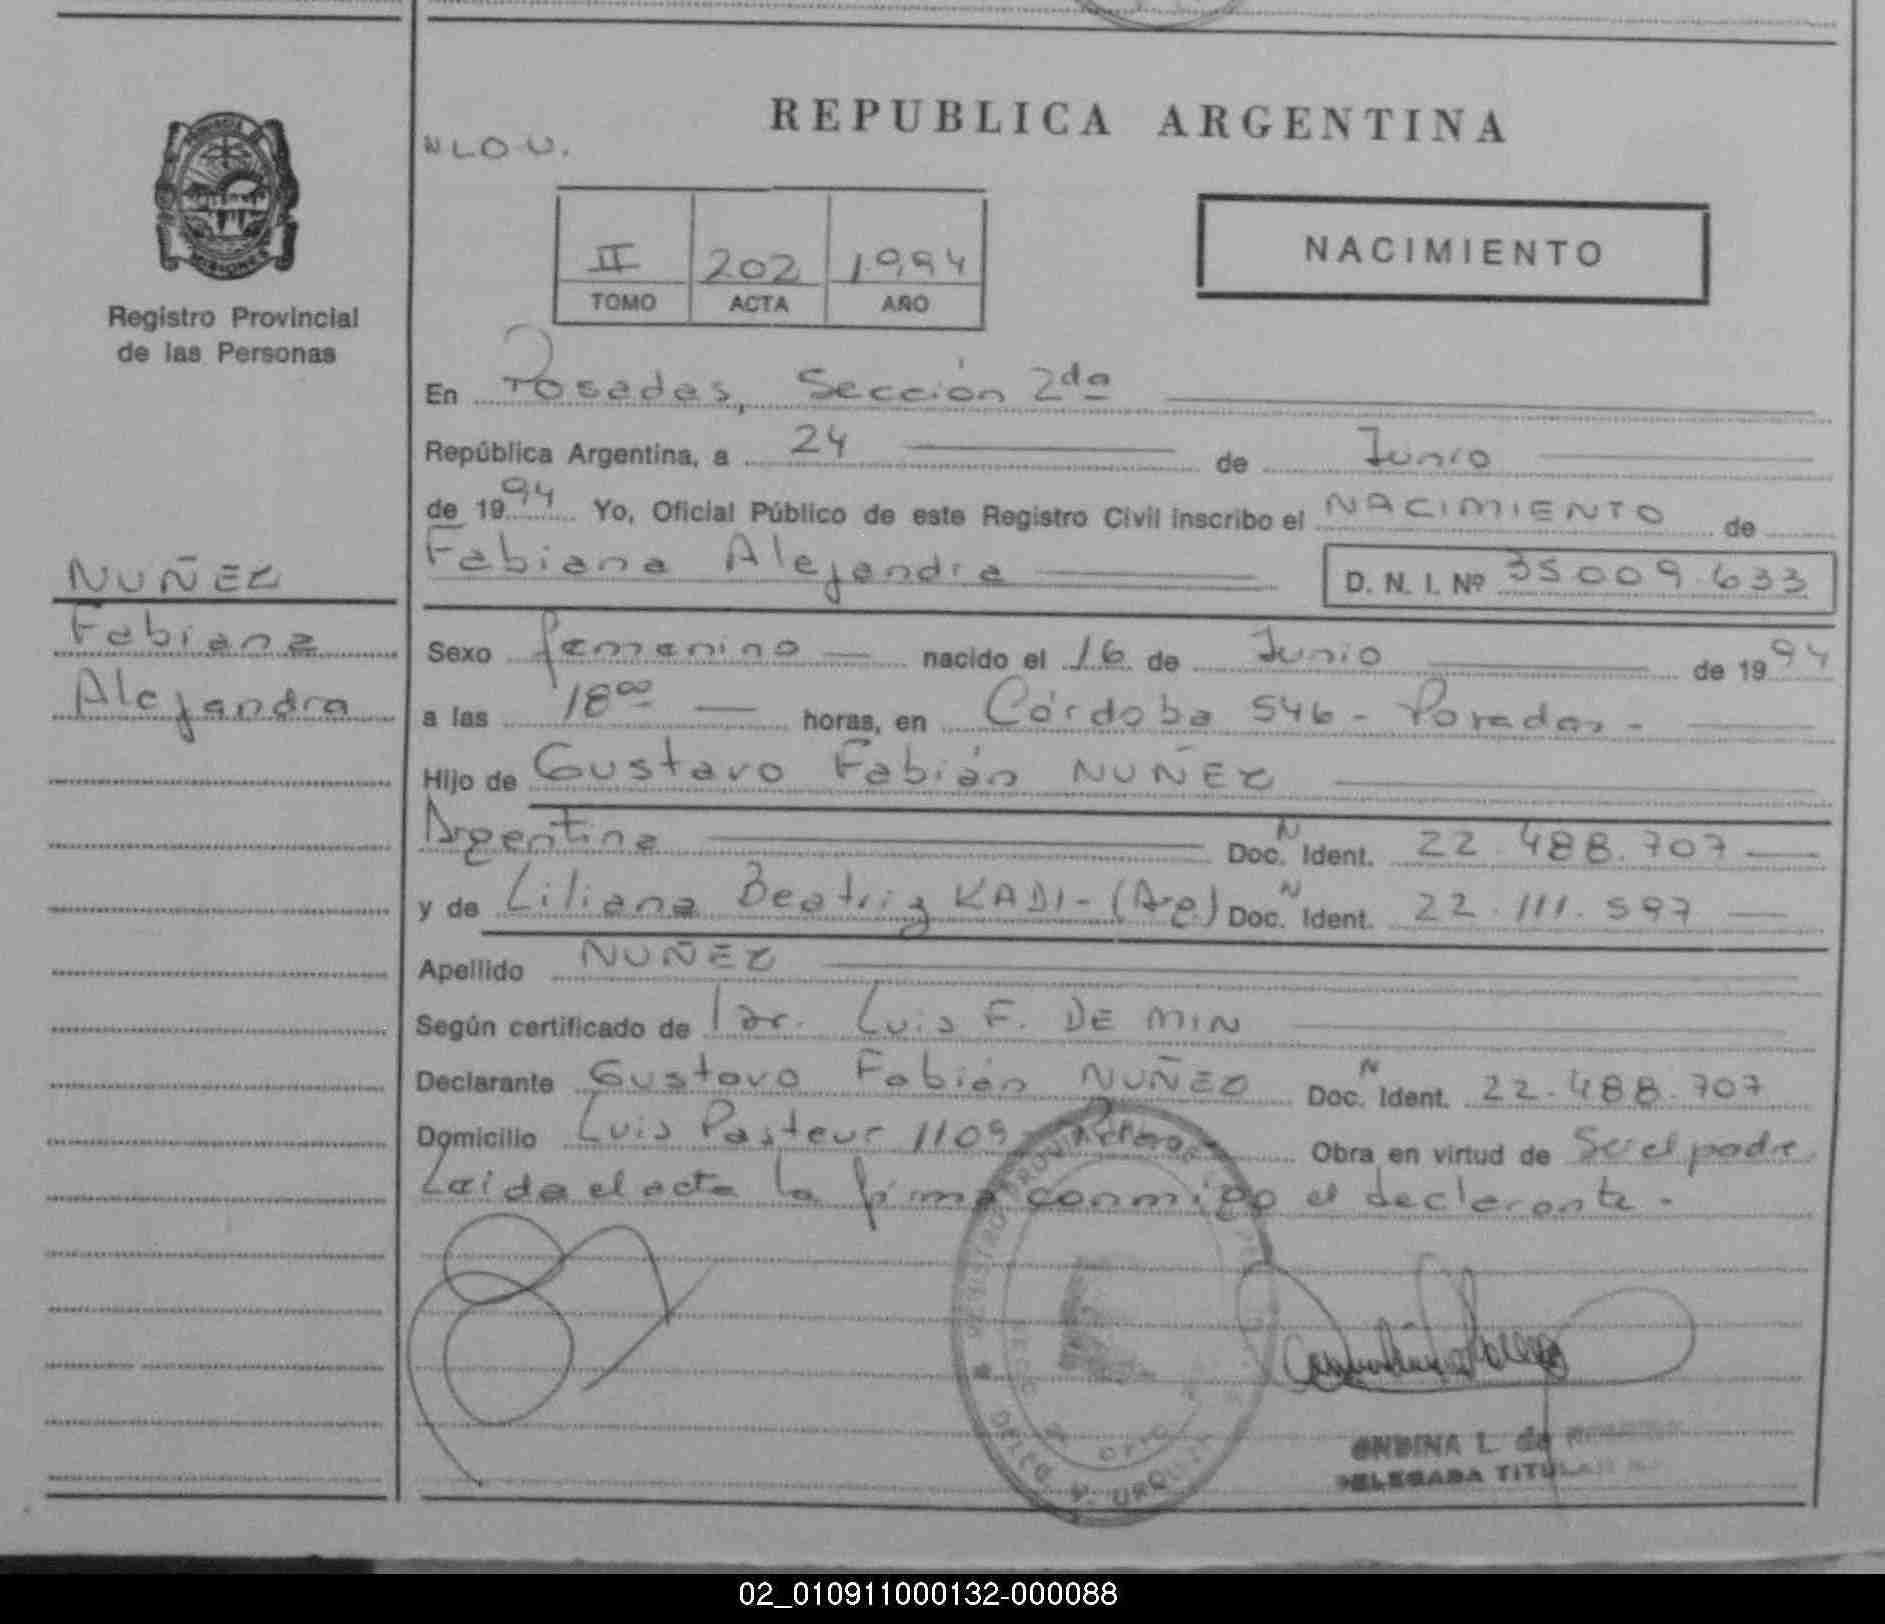 REPUBLICA ARGENTINA
NLOU.
MISIONES
Registro Provincial
de las Personas
II 202 1.994
TOMO ACTA AÑO
NACIMIENTO
En Posadas, Sección 2da
República Argentina, a 24 de Junio
de 1994 Yo, Oficial Público de este Registro Civil inscribo el NACIMIENTO de
Fabiana Alejandra D. N. I. Nº 35009.633
NUÑEZ
Fabiana
Alejandra
Sexo femenino nacido el 16 de Junio de 1994
a las 18 00 horas, en Córdoba 546 - Posadas -
Hijo de Gustavo Fabián NUÑEZ
Argentina Doc. N Ident. 22.488.707
y de Liliana Beatriz KADI - (Arg) Doc. N Ident. 22.111.597
Apellido NUÑEZ
Según certificado de Luis F. DE MIN
Declarante Gustavo Fabián NUÑEZ Doc. N Ident. 22.488.707
Domicilio Luis Pasteur 1109 Obra en virtud de Ser el padre
Leída el acta la firma conmigo el declarante.
ONDINA L. de
DELEGADA TITULAR
02_010911000132-000088